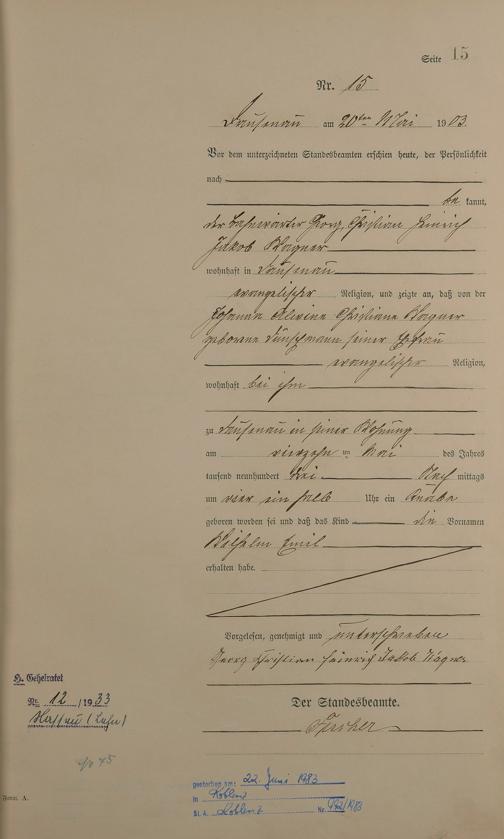 Seite 15
Nr. 15
Dausenau am 20ten Mai 1903.
Vor dem unterzeichneten Standesbeamten erschien heute, der Persönlichkeit
nach
bekannt,
der Bahnwärter Georg Christian Heinrich
Jakob Wagner
wohnhaft in Dausenau
evangelischer Religion, und zeigte an, daß von der
Johanna Alwine Christiane Wagner
geborene seiner Ehefrau
evangelischer Religion,
wohnhaft bei ihm
zu Dausenau in seiner Wohnung
am vierzehnten Mai des Jahres
tausend neunhundert drei Nachmittags
um vier ein halb Uhr ein Knabe
geboren worden sei und daß das Kind die Vornamen
Wilhelm Emil
erhalten habe.
Vorgelesen, genehmigt und unterschrieben
Georg Christian Heinrich Jakob Wagner
Der Standesbeamte.
H. Geheiratet
Nr. 12/1933
Nassau (Lahn)
gestorben am: 22. Juni 1983
in Koblenz
St. A. Koblenz Nr. /1983
Form. A.